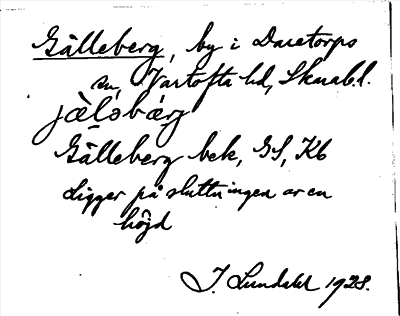 Gälleberg, by i Daretorps
sn, Vartofta hd, Skarab.l.
jæ̀lǝbǽrg
Gälleberg bek, GS, Kb
Ligger på sluttningen av en
höjd
J. Lundahl 1928.